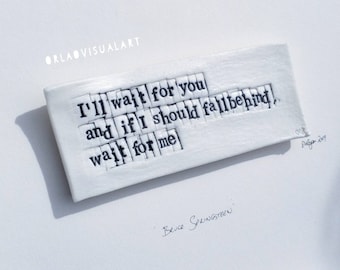 ORLAOVISUALART
I'll wait for you
and if I should fallbehind,
wait for me
'BRUCE SPRINGSTEEN'